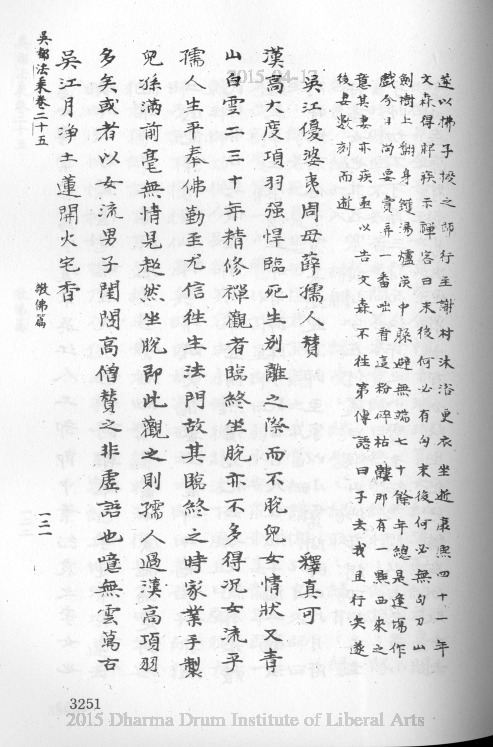 遂以拂子授之師行至謝村沐浴更衣坐逝康熙四十一年
文森得肝疾示禪客曰末後何必有句末後何必無句刀山
劍樹上翻身鑊湯爐炭中躲避無端七十餘年總是逢場作
戲今日尚要賣弄一番咄看這粉碎枯髏那有一點西來之
意其妻亦疾亟以告文森不往第傳語曰子去我且行矣遂
後妻數刻而逝
吳江優婆夷周母薛孺人贊 釋真可
漢高大度項羽强悍臨死生別離之際而不脫兒女情狀又青
山白雲二三十年精修禪觀者臨終坐脫亦不多得況女流乎
孺人生平奉佛勤至尤信往生法門故其臨終之時家業手製
兒孫滿前毫無情見超然坐脫即此觀之則孺人過漢高項羽
多矣或者以女流男子閨閤高僧贊之非虛語也噫無雲萬古
吳江月淨土蓮開火宅香
吳都法乘卷二十五 敬佛篇 一二一
3251
2015-04-17
2015 Dharma Drum Institute of Liberal Arts